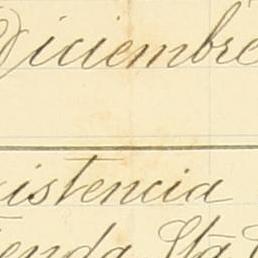 Diciembre
istencia
ienda Sta